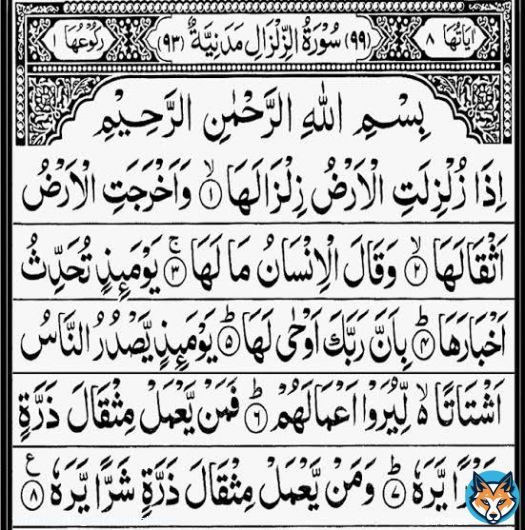 اٰیَاتُهَا ٨ (٩٩) سُوْرَةُ الزِّلْزَالِ مَدَنِیَّةٌ (٩٣) رُكُوْعُهَا ١
بِسْمِ اللهِ الرَّحْمٰنِ الرَّحِیْمِ
اِذَا زُلْزِلَتِ الْاَرْضُ زِلْزَالَهَا ۙ﴿١﴾ وَاَخْرَجَتِ الْاَرْضُ
اَثْقَالَهَا ۙ﴿٢﴾ وَقَالَ الْاِنْسَانُ مَا لَهَا ۚ﴿٣﴾ یَوْمَىِٕذٍ تُحَدِّثُ
اَخْبَارَهَا ؕ﴿٤﴾ بِاَنَّ رَبَّكَ اَوْحٰی لَهَا ؕ﴿٥﴾ یَوْمَىِٕذٍ یَّصْدُرُ النَّاسُ
اَشْتَاتًا ۙ۬ لِّیُرَوْا اَعْمَالَهُمْ ؕ﴿٦﴾ فَمَنْ یَّعْمَلْ مِثْقَالَ ذَرَّةٍ
یَّرَهٗ ؕ﴿٧﴾ وَمَنْ یَّعْمَلْ مِثْقَالَ ذَرَّةٍ شَرًّا یَّرَهٗ ﴿٨﴾ ع